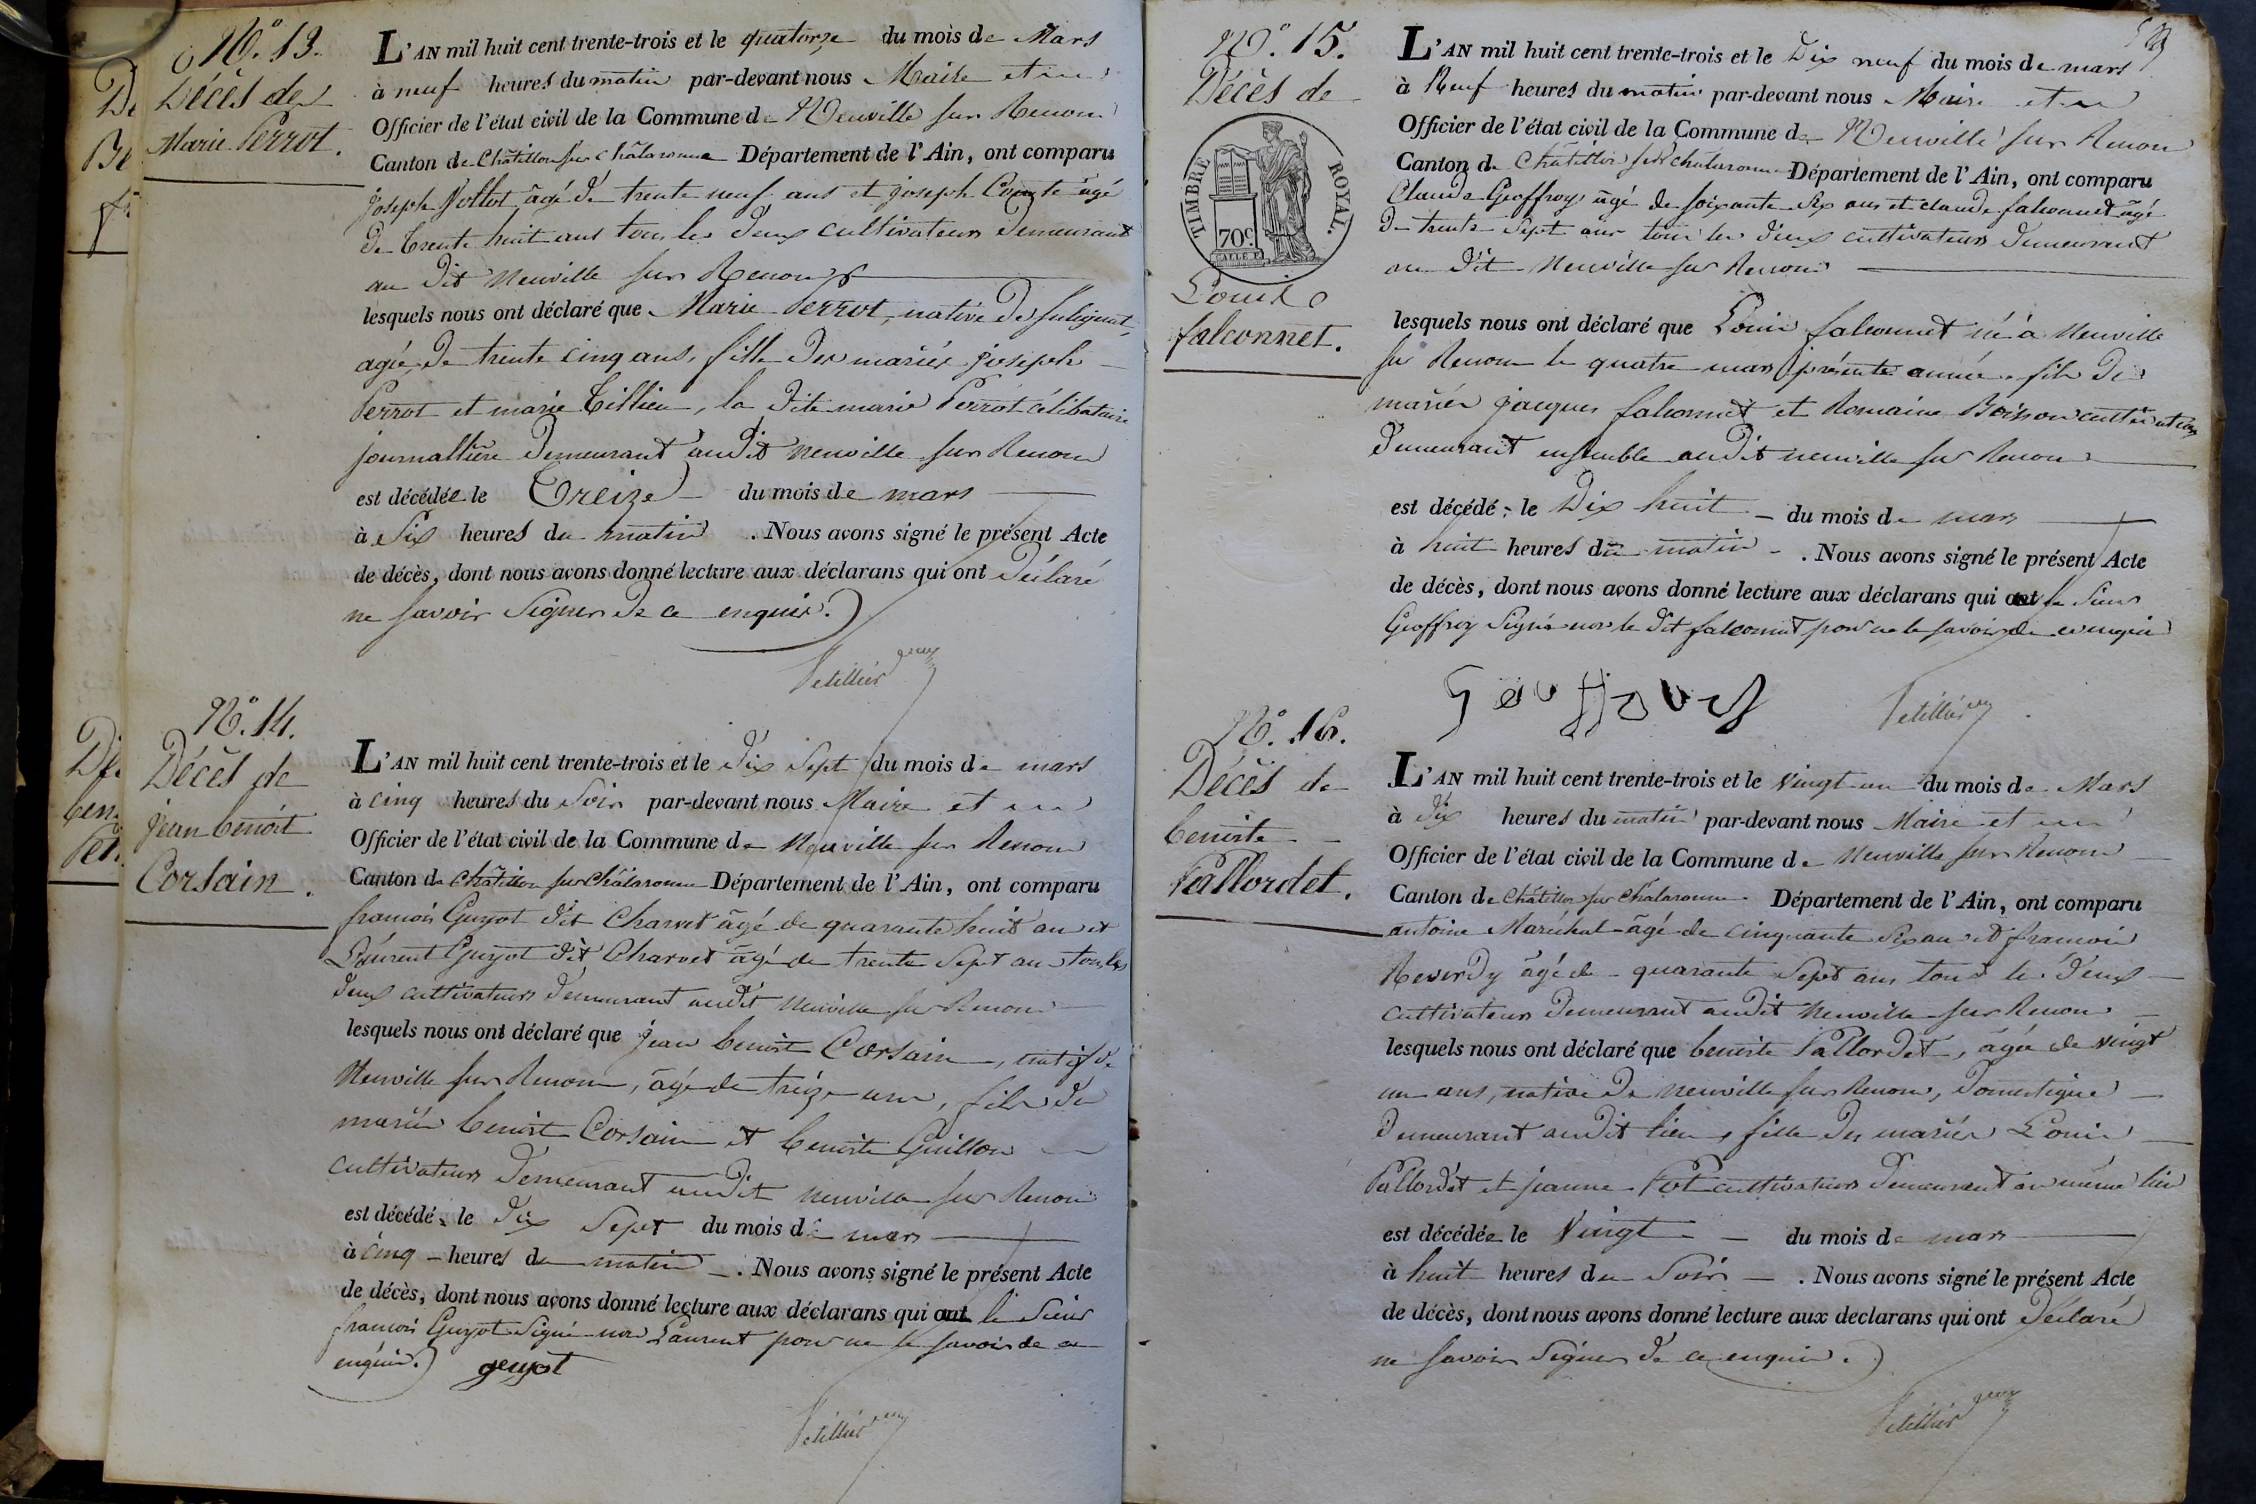 N.º 13.
Décès de
Marie Perrot.
L'AN mil huit cent trente-trois et le quatorze du mois de Mars
à neuf heures du matin par-devant nous Maire et
Officier de l'état civil de la Commune de Neuville sur Renom
Canton de Châtillon sur Chalaronne Département de l'Ain, ont comparu
joseph Vollot âgé de trente neuf ans et joseph Comte âgé
de trente huit ans tous les deux cultivateurs demeurant
au dit Neuville sur Renom
lesquels nous ont déclaré que Marie Perrot, native de
agée de trente cinq ans, fille des mariés joseph
Perrot et marie Tillieu, la dite marie Perrot célibataire
journallière demeurant audit neuville sur Renom
est décédée le Treize du mois de mars
à Six heures du matin. Nous avons signé le présent Acte
de décès, dont nous avons donné lecture aux déclarans qui ont déclaré
ne savoir signer de ce enquis.
Petillier
N.º 14.
Décès de
jean benoit
Corsain.
L'AN mil huit cent trente-trois et le dix sept du mois de mars
à cinq heures du soir par-devant nous Maire et
Officier de l'état civil de la Commune de Neuville sur Renom
Canton de Châtillon sur Chalaronne Département de l'Ain, ont comparu
francois Guyot dit Charvet âgé de quarante huit ans et
Laurent Guyot dit Charvet âgé de trente sept ans tous les
deux cultivateurs demeurant audit Neuville sur Renom
lesquels nous ont déclaré que jean benoit Corsain, natif de
Neuville sur Renom, âgé de treize ans, fils de
mariés benoit Corsain et benoite Guillon
cultivateurs demeurant audit neuville sur Renom
est décédé le dix sept du mois de mars
à cinq heures du matin. Nous avons signé le présent Acte
de décès, dont nous avons donné lecture aux déclarans qui ont le sieur
francois Guyot signé non Laurent pour ne le savoir de ce
enquis. guyot
Petillier
N.º 15.
Décès de
TIMBRE ROYAL.
70c
Louis
falconnet.
L'AN mil huit cent trente-trois et le Dix neuf du mois de mars
à Neuf heures du matin par-devant nous Maire et
Officier de l'état civil de la Commune de Neuville sur Renom
Canton de Châtillon sur chalaronne Département de l'Ain, ont comparu
Claude Geoffroy âgé de soixante six ans et claude falconnet âgé
de trente sept ans tous les deux cultivateurs demeurant
au dit Neuville sur Renom
lesquels nous ont déclaré que Louis falconnet né à Neuville
sur Renom le quatre mars présente année, fils de
mariés jacques falconnet et Romaine Boisson cultivateurs
demeurant ensemble audit neuville sur Renom
est décédé le Dix huit du mois de mars
à huit heures du matin. Nous avons signé le présent Acte
de décès, dont nous avons donné lecture aux déclarans qui ont le sieur
Geoffroy signé non le dit falconnet pour ne le savoir de ce enquis
Petillier
N.º 16.
Décès de
benoite
Pallordet.
L'AN mil huit cent trente-trois et le vingt un du mois de Mars
à dix heures du matin par-devant nous Maire et
Officier de l'état civil de la Commune de Neuville sur Renom
Canton de Châtillon sur Chalaronne Département de l'Ain, ont comparu
antoine Maréchal âgé de cinquante six ans et francois
Reverdy âgé de quarante sept ans tous les deux
cultivateurs demeurant audit Neuville sur Renom
lesquels nous ont déclaré que benoite Pallordet, âgée de vingt
un ans, native de neuville sur Renom, domestique
demeurant audit lieu, fille des mariés Louis
Pallordet et jeanne Pot cultivateurs demeurant au même lieu
est décédée le vingt du mois de mars
à huit heures du soir. Nous avons signé le présent Acte
de décès, dont nous avons donné lecture aux declarans qui ont déclaré
ne savoir signer de ce enquis.
Petillier